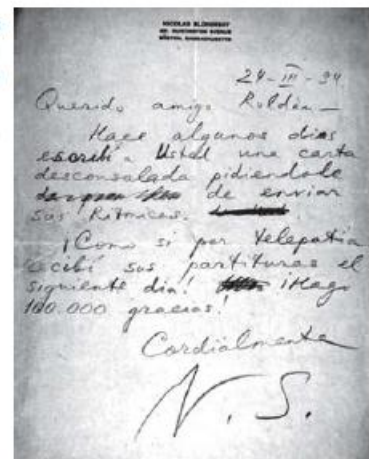 NICOLAS SLONIMSKY
24-III-34
Querido amigo Roldán —
Hace algunos dias
escribí a Usted una carta
desconsolada pidiendole
de enviar
sus Rítmicas.
¡Como si por telepatía
recibí sus partituras el
siguiente dia! ¡Hago
100.000 gracias!
Cordialmente
N. S.